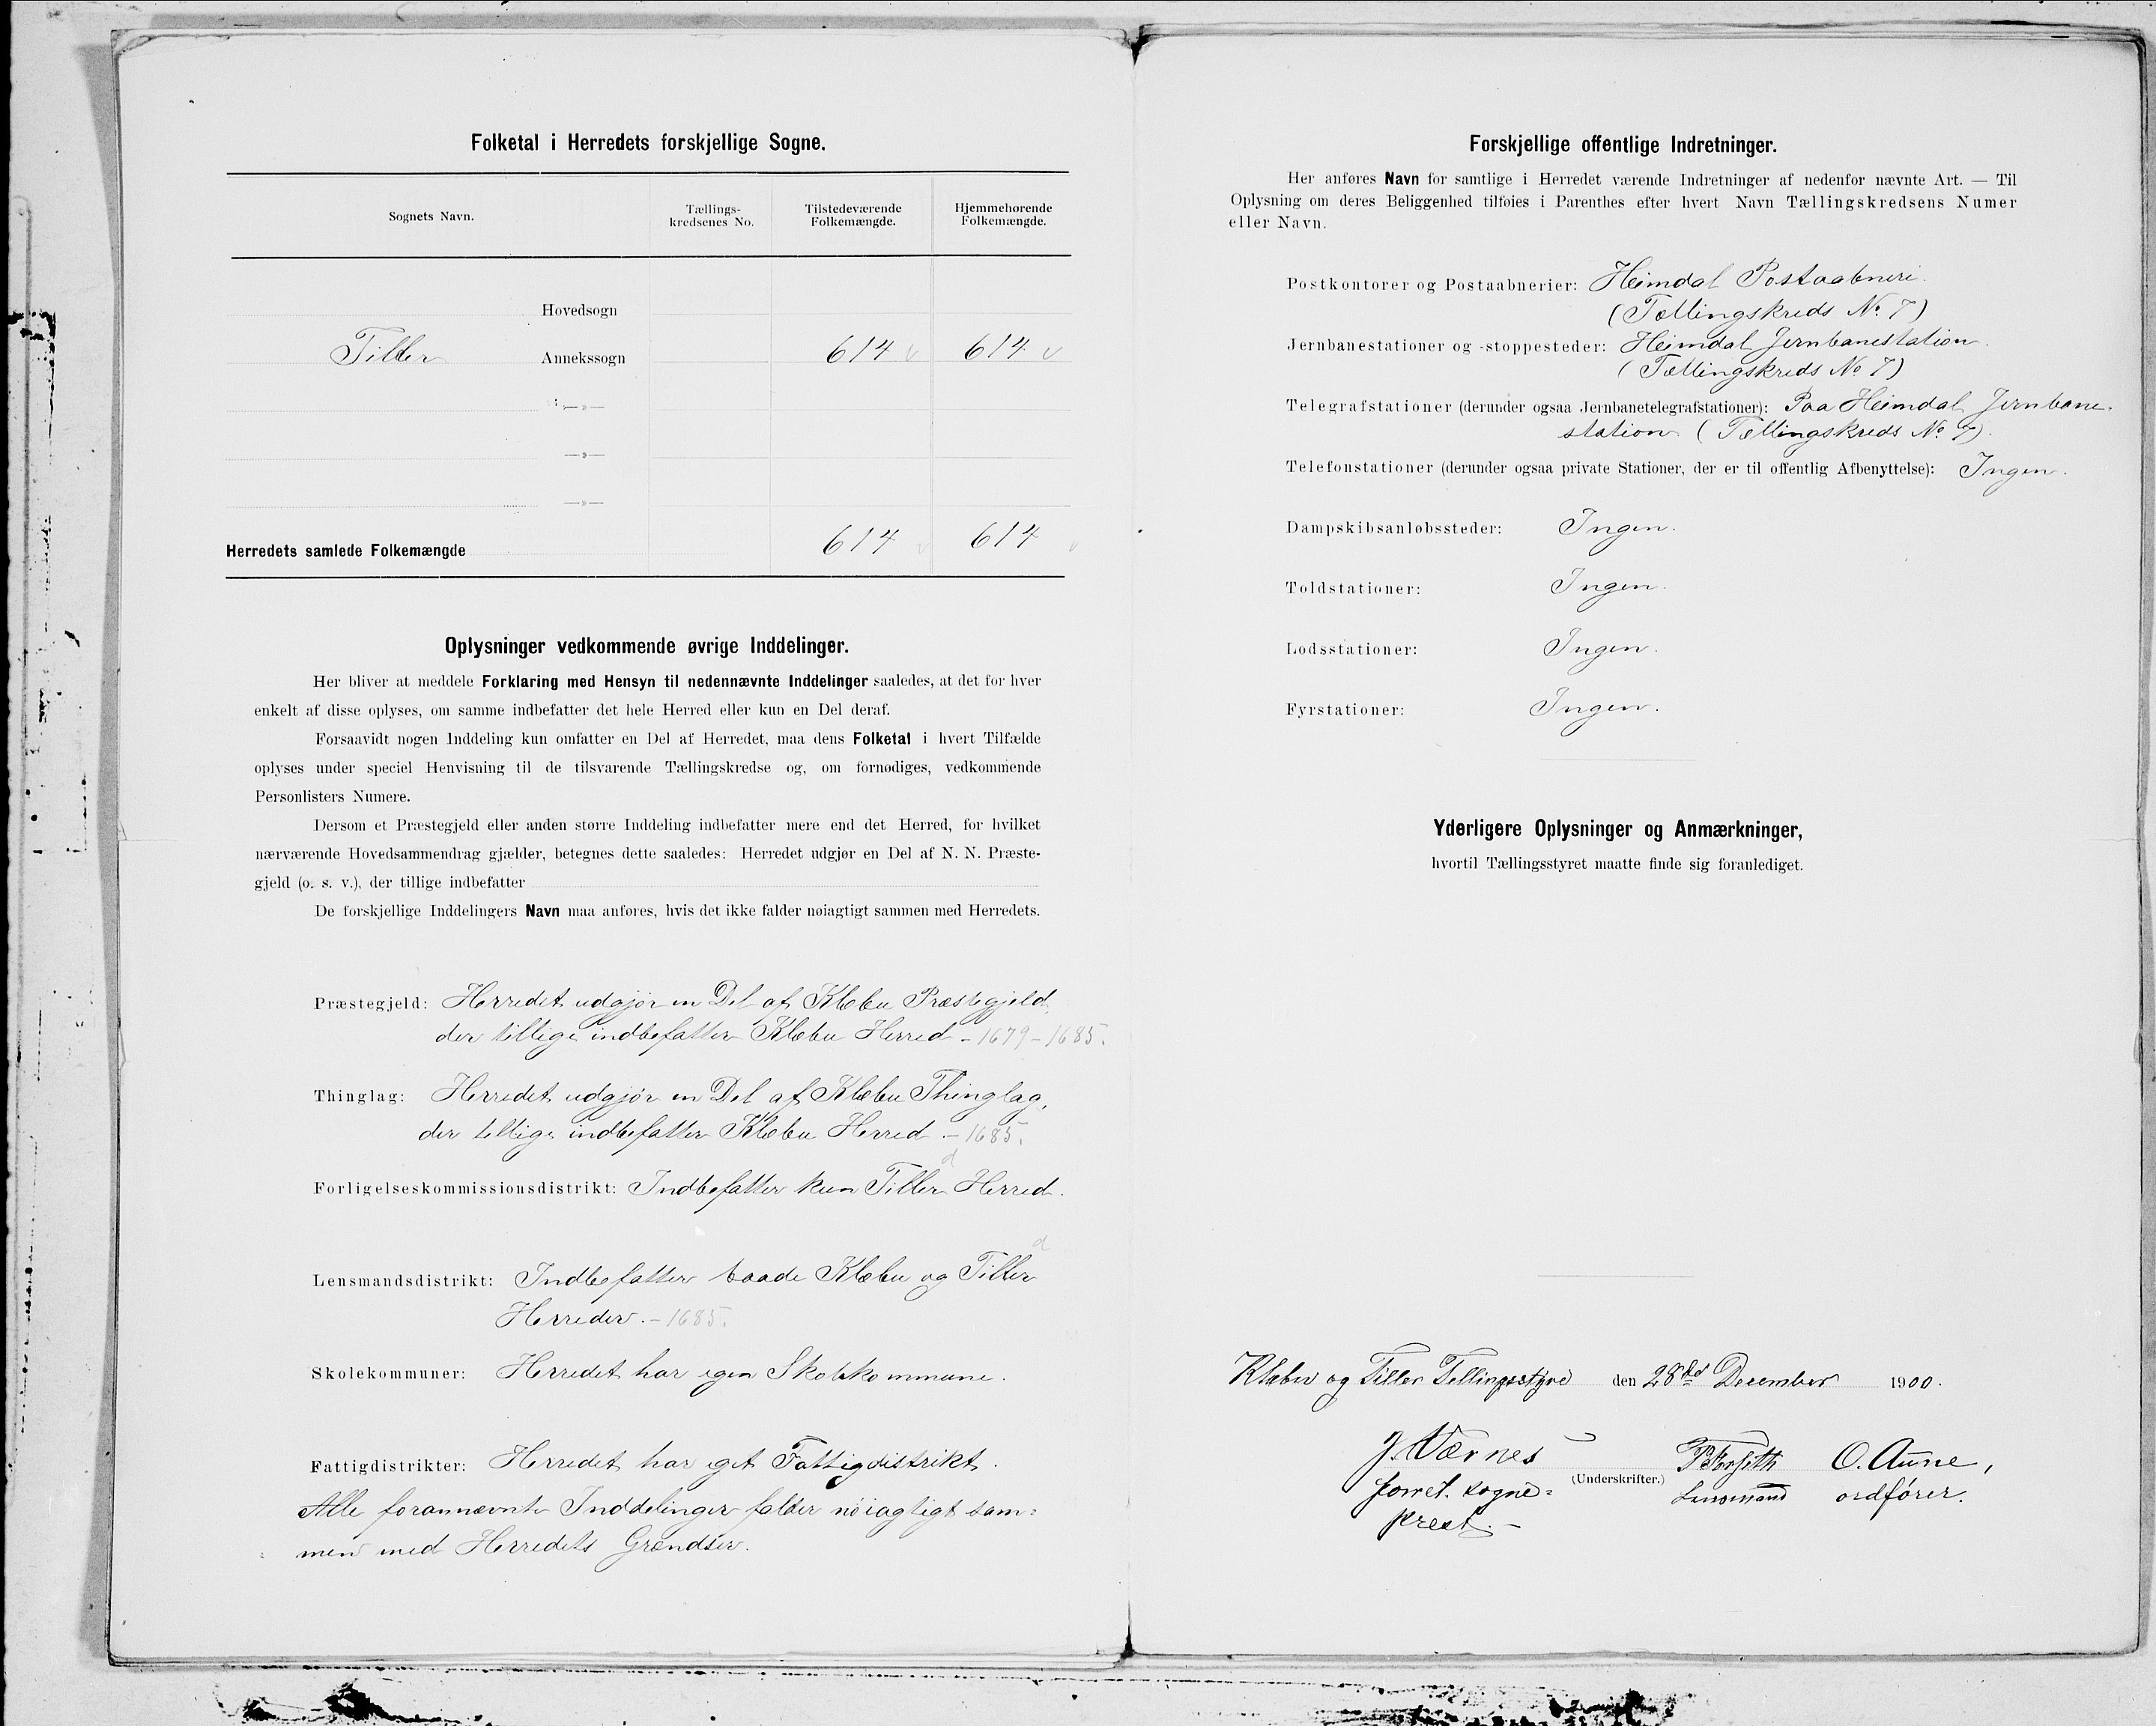 Folketal i Herredets forskjellige Sogne.
Sognets Navn.
Tællings-
kredsenes No.
Tilstedeværende
Folkemængde.
Hjemmehørende
Folkemængde.
Hovedsogn
Tiller Annekssogn 614 v 614 v
—»—
—»—
—»—
Herredets samlede Folkemængde 614 v 614 v
Oplysninger vedkommende øvrige Inddelinger.
Her bliver at meddele Forklaring med Hensyn til nedennævnte Inddelinger saaledes, at det for hver
enkelt af disse oplyses, om samme indbefatter det hele Herred eller kun en Del deraf.
Forsaavidt nogen Inddeling kun omfatter en Del af Herredet, maa dens Folketal i hvert Tilfælde
oplyses under speciel Henvisning til de tilsvarende Tællingskredse og, om fornødiges, vedkommende
Personlisters Numere.
Dersom et Præstegjeld eller anden større Inddeling indbefatter mere end det Herred, for hvilket
nærværende Hovedsammendrag gjælder, betegnes dette saaledes: Herredet udgjør en Del af N. N. Præste-
gjeld (o. s. v.), der tillige indbefatter
De forskjellige Inddelingers Navn maa anføres, hvis det ikke falder nøiagtigt sammen med Herredets.
Præstegjeld: Herredet udgjør en Del af Klæbu Præstegjeld,
der tillige indbefatter Klæbu Herred - 1679 - 1685.
Thinglag: Herredet udgjør en Del af Klæbu Thinglag,
der tillige indbefatter Klæbu Herred. - 1685.
Forligelseskommissionsdistrikt: Indbefatter kun Tiller Herred.
Lensmandsdistrikt: Indbefatter baade Klæbu og Tiller
Herreder. - 1685.
Skolekommuner: Herredet har egen Skolekommune.
Fattigdistrikter: Herredet har eget Fattigdistrikt.
Alle forannævnte Inddelinger falder nøiagtigt sam=
men med Herredets Grændser.
Forskjellige offentlige Indretninger.
Her anføres Navn for samtlige i Herredet værende Indretninger af nedenfor nævnte Art. — Til
Oplysning om deres Beliggenhed tilføies i Parenthes efter hvert Navn Tællingskredsens Numer
eller Navn.
Postkontorer og Postaabnerier: Heimdal Postaabneri.
(Tællingskreds No. 7)
Jernbanestationer og -stoppesteder: Heimdal Jernbanestation.
(Tællingskreds No 7)
Telegrafstationer (derunder ogsaa Jernbanetelegrafstationer): Paa Heimdal Jernbane-
station (Tællingskreds No. 7).
Telefonstationer (derunder ogsaa private Stationer, der er til offentlig Afbenyttelse): Ingen.
Dampskibsanløbssteder: Ingen.
Toldstationer: Ingen.
Lodsstationer: Ingen.
Fyrstationer: Ingen.
Yderligere Oplysninger og Anmærkninger,
hvortil Tællingsstyret maatte finde sig foranlediget.
Klæbu og Tiller Tellingsstyre den 28de December 1900.
J. Værnes P. Forseth O. Aune,
(Underskrifter.)
forret. sogne= Lensmand ordfører.
prest. -